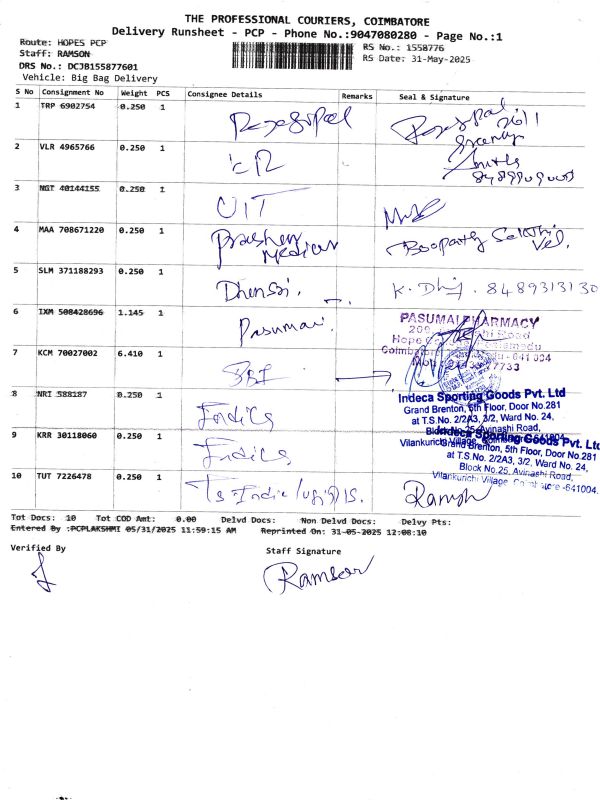 THE PROFESSIONAL COURIERS, COIMBATORE
Delivery Runsheet - PCP - Phone No.:9047080280 - Page No.:1
Route: HOPES PCP
Staff: RAMSON
DRS No.: DCJB155877601
Vehicle: Big Bag Delivery
RS No.: 1558776
RS Date: 31-May-2025
S No Consignment No Weight PCS Consignee Details Remarks Seal & Signature
1 TRP 6902754 0.250 1 Rajagopal Rajagopal
2 VLR 4965766 0.250 1
3 NGT 40144155 0.250 1 UIT
4 MAA 708671220 0.250 1 Boopathy Sakthi Vel.
5 SLM 371188293 0.250 1 K. 8489313130
6 IXM 508428696 1.145 1 Pasumai
PASUMAI PHARMACY
7 KCM 70027002 6.410 1 SBI
8 NRI 588187 0.250 1
Indeca Sporting Goods Pvt. Ltd
Grand Brenton, 5th Floor, Door No.281
at T.S.No. 2/2A3, 3/2, Ward No. 24,
Block No.25, Avinashi Road,
9 KRR 30118060 0.250 1
Indeca Sporting Goods Pvt. Ltd
Grand Brenton, 5th Floor, Door No.281
at T.S.No. 2/2A3, 3/2, Ward No. 24,
Block No.25, Avinashi Road,
Vilankurichi Village, Coimbatore -641004.
10 TUT 7226478 0.250 1
Tot Docs: 10 Tot COD Amt: 0.00 Delvd Docs: Non Delvd Docs: Delvy Pts:
Entered By :PCPLAKSHMI 05/31/2025 11:59:15 AM Reprinted On: 31-05-2025 12:08:10
Verified By
Staff Signature
Ramson